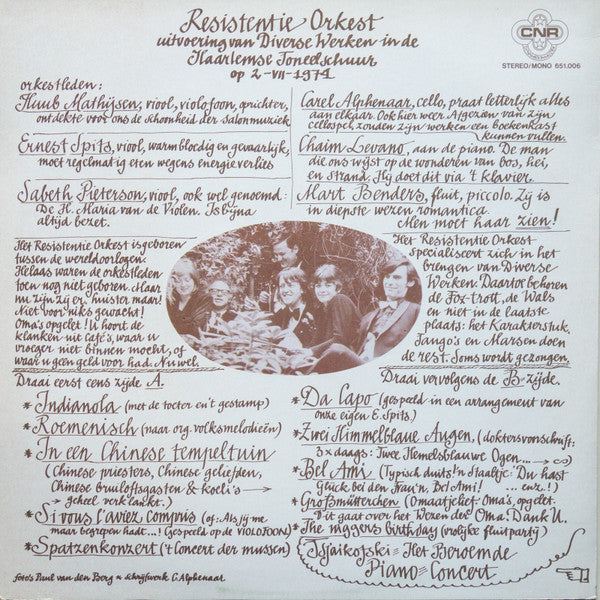 Resistentie Orkest
uitvoering van Diverse Werken in de
Haarlemse Toneelschuur
op 2-VII-1974
CNR
STEREO/MONO 651.006
orkestleden:
Huub Mathijsen, viool, violofoon, oprichter,
ontdekte voor ons de schoonheid der salonmuziek
Ernest Spits, viool, warmbloedig en gevaarlijk,
moet regelmatig eten wegens energieverlies
Sabeth Pieterson, viool, ook wel genoemd:
De H. Maria van de Violen. Is bijna
altijd bezet.
Carel Alphenaar, cello, praat letterlijk alles
aan elkaar. Ook hier weer. Afgezien van zijn
cellospel, zouden zijn werken een boekenkast
kunnen vullen.
Chaim Levano, aan de piano. De man
die ons wijst op de wonderen van bos, hei,
en strand. Hij doet dit via 't klavier.
Mart Benders, fluit, piccolo. Zij is
in diepste wezen romantica.
Men moet haar zien!
Het Resistentie Orkest is geboren
tussen de wereldoorlogen.
Helaas waren de orkestleden
toen nog niet geboren. Maar
nu zijn zij er, luister maar!
Niet voor niks gewacht!
Oma's opgelet! U hoort de
klanken uit café's, waar u
vroeger niet binnen mocht, of
waar u geen geld voor had. Nu wel.
Draai eerst eens zijde A.
* Indianola (met de toeter en 't gestamp)
* Roemenisch (naar org. volksmelodieën)
* In een Chinese tempeltuin
(Chinese priesters, Chinese geliefden,
Chinese bruiloftsgasten & koeli's
→ geheel verklankt.)
* Si vous l'aviez compris (of: Als jij me
maar begrepen hadt...! (gespeeld op de VIOLOFOON)
* Spatzenkonzert ('t Concert der mussen)
foto's Paul van den Berg * schrijfwerk C. Alphenaar
Het Resistentie Orkest
specialiseert zich in het
brengen van Diverse
Werken. Daartoe behoren
de Fox-trott, de Wals
en niet in de laatste
plaats: het Karakterstuk.
Tango's en Marsen doen
de rest. Soms wordt gezongen.
Draai vervolgens de B-zijde.
* Da Capo (gespeeld in een arrangement van
onze eigen E. Spits)
* Zwei Himmelblaue Augen, (doktersvoorschrift:
3 x daags: Twee Hemelsblauwe Ogen...→ ∞)
* Bel Ami (Typisch duits! 'n Staaltje: Du hast
Glück bei den Frau'n, Bel Ami! ... enz.!)
* Großmütterchen (Omaatjelief: Oma's, opgelet.
Dit gaat over het Wezen der Oma. Dank U.
* The niggers birthday (vrolijke fluitparty)
Tsjaikofski = Het Beroemde
Piano = Concert